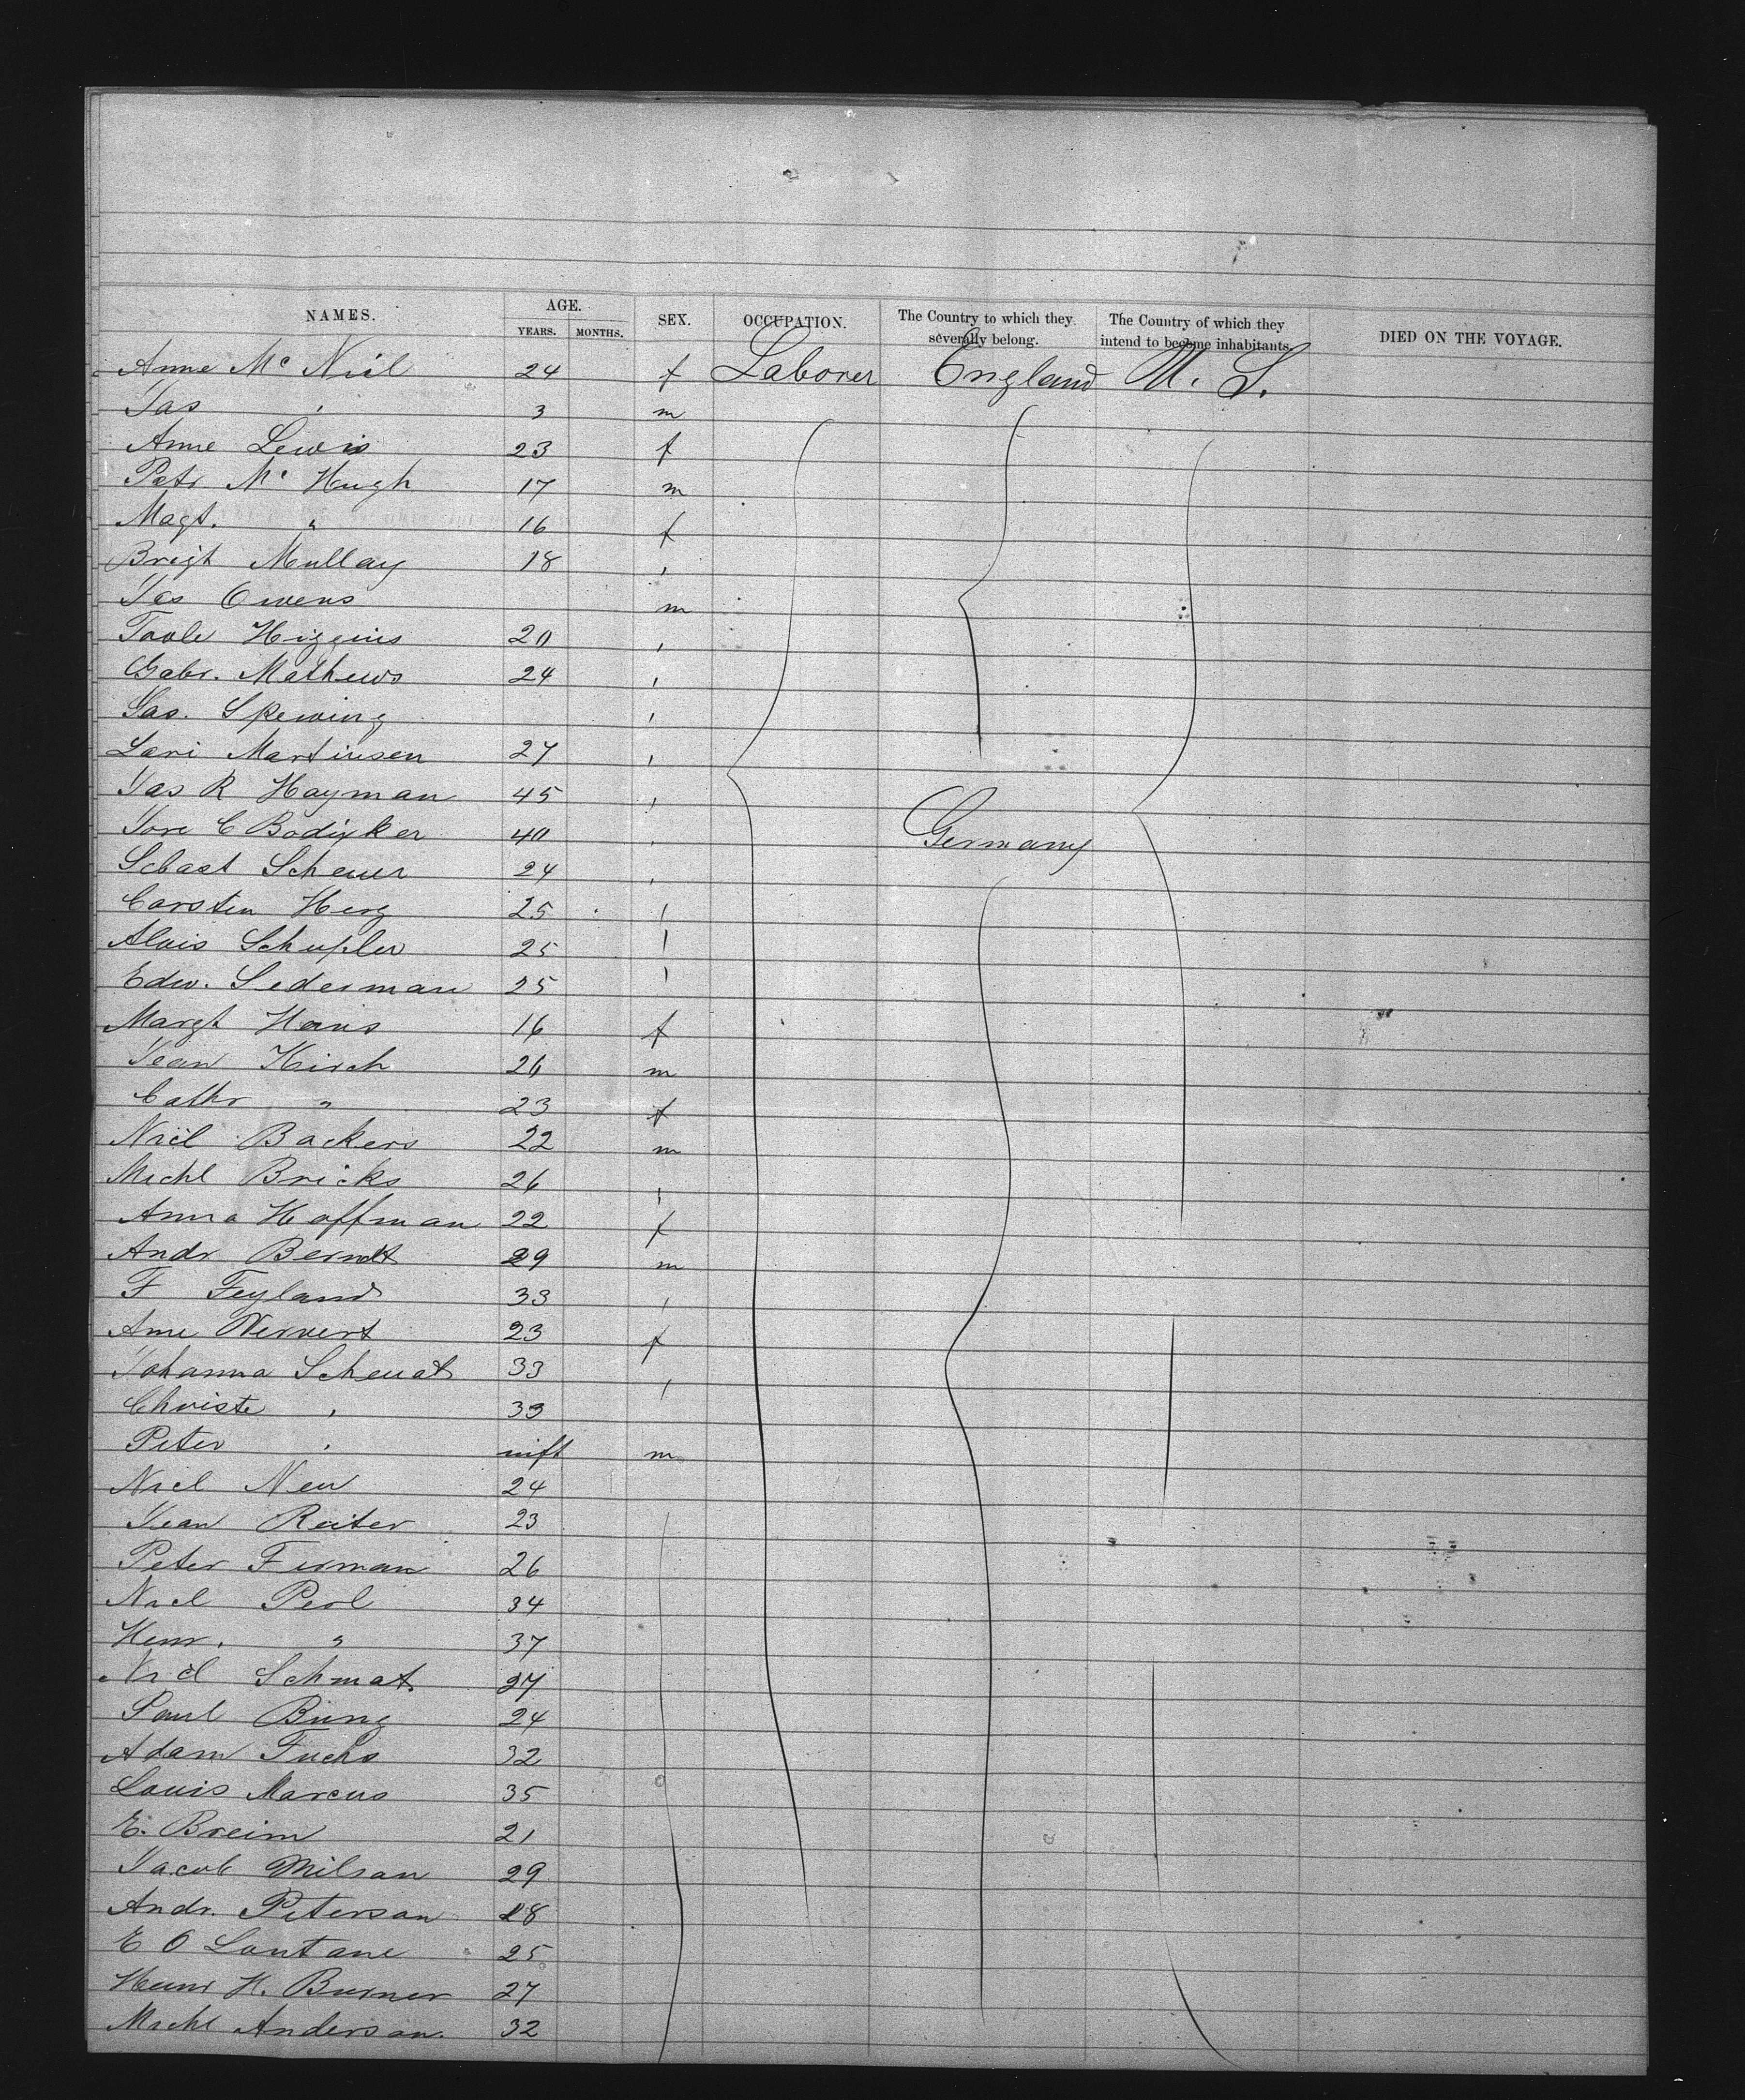 NAMES. AGE. SEX. OCCUPATION. The Country to which they severally belong. The Country of which they intend to become inhabitants. DIED ON THE VOYAGE.
YEARS. MONTHS.
Anne Mc Niel 24 f Laborer England U. S.
Jas " 3 m
Anne Lewis 23 f
Patr Mc Hugh 17 m
Magt. " 16 f
Brigt Mullay 18 "
Jas Owens m
Toole Higgins 20 "
Gabr. Mathews 24 "
Jas. Skewing "
Lari Martinsen 27 "
Jas R Hayman 45 "
Jore C Bodixker 40 " Germany
Sebast Scheuer 24 "
Carsten Herg 25 "
Alois Schupler 25 "
Edw. Sederman 25 "
Margt Hans 16 f
Jean Kirch 26 m
Cathr " 23 f
Niel Backers 22 m
Michl Bricks 26 "
Anna Hoffman 22 f
Andr Berndt 29 m
F Feyland 33 "
Anne Wervert 23 f
Johanna Scheuat 33 "
Christe " 33
Peter " inft m
Niel New 24
Jean Reiter 23
Peter Firman 26
Niel Perl 34
Henr. " 37
Niel Schmat 27
Paul Bung 24
Adam Fuchs 32
Louis Marcus 35
E. Breim 21
Jacob Milsan 29
Andr. Peterson 28
E O Lautane 25
Henr H. Burner 27
Michl Anderson 32